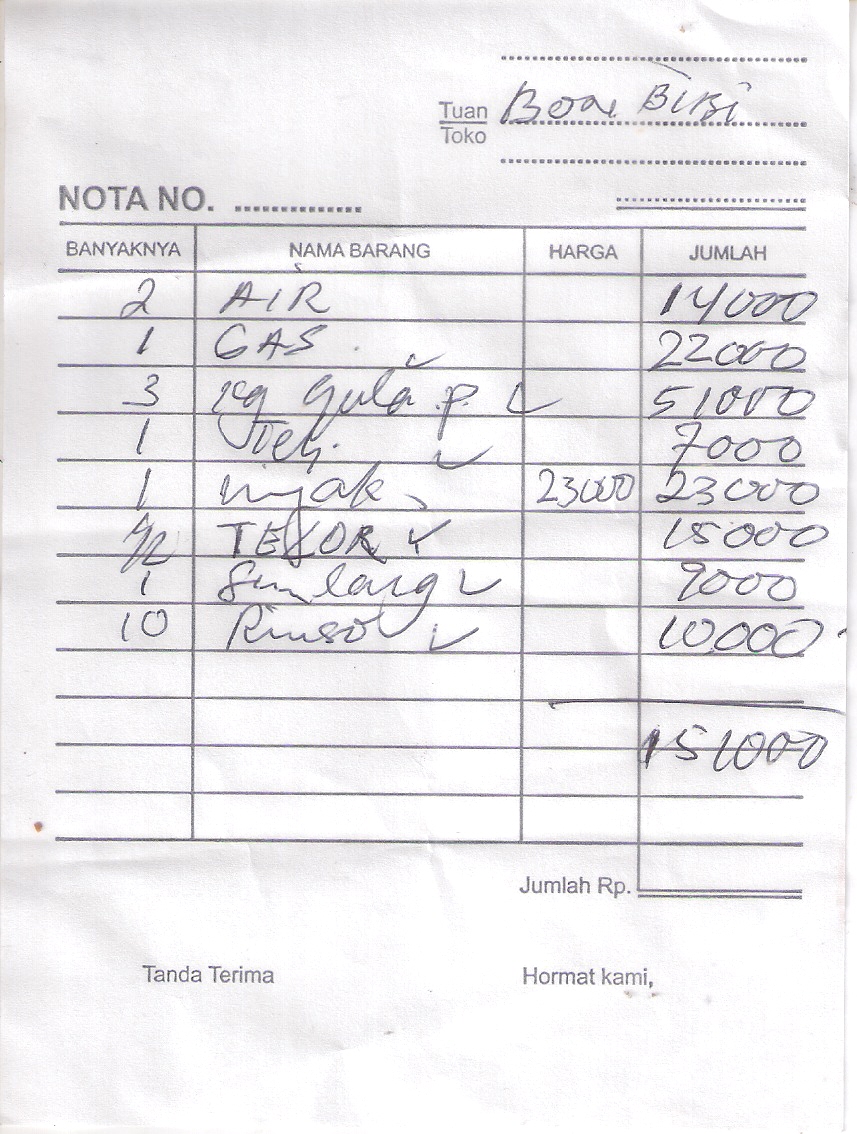 Tuan Toko Bon BIBI
NOTA NO. ..............
BANYAKNYA NAMA BARANG HARGA JUMLAH
2 AIR 14000
1 GAS 22000
3 kg gula p. 51000
1 7000
1 minyak 23000 23000
1/2 TELOR 15000
1 Sunlang 9000
10 Rinso 10.000
151000
Jumlah Rp.
Tanda Terima Hormat kami,